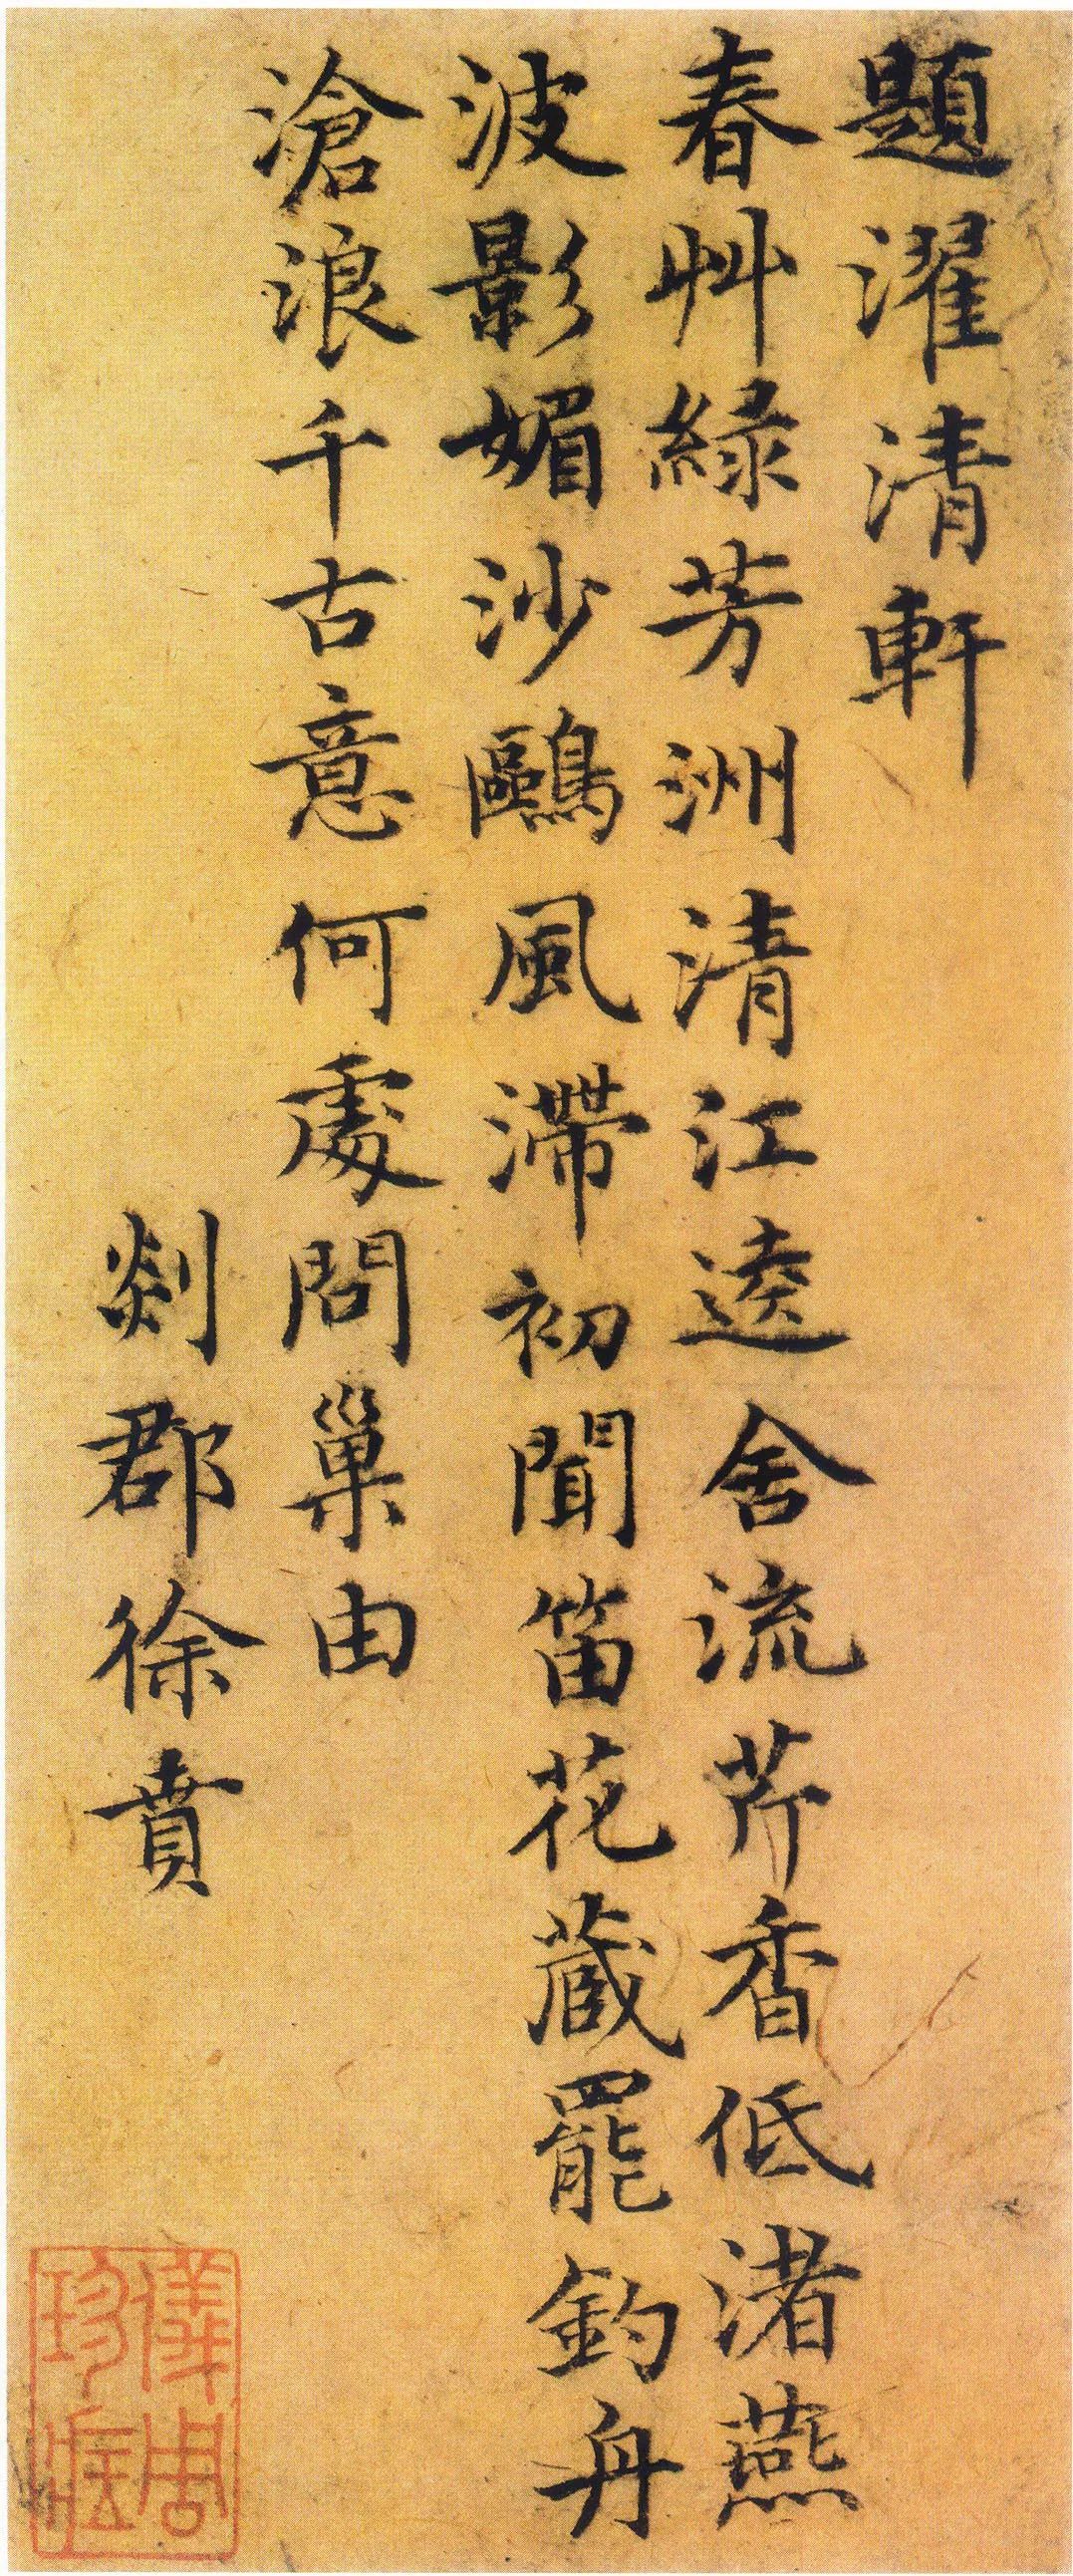 題濯清軒
春艸緑芳洲清江逺舍流芹香低渚燕
波影媚沙鷗風滯初聞笛花蔵罷釣舟
滄浪千古意何處問巢由
剡郡徐賁
儀周
珍藏